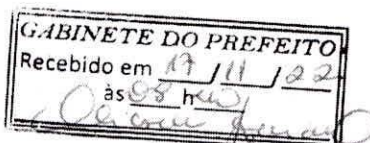 GABINETE DO PREFEITO
Recebido em 17 / 11 / 22
às 08 h